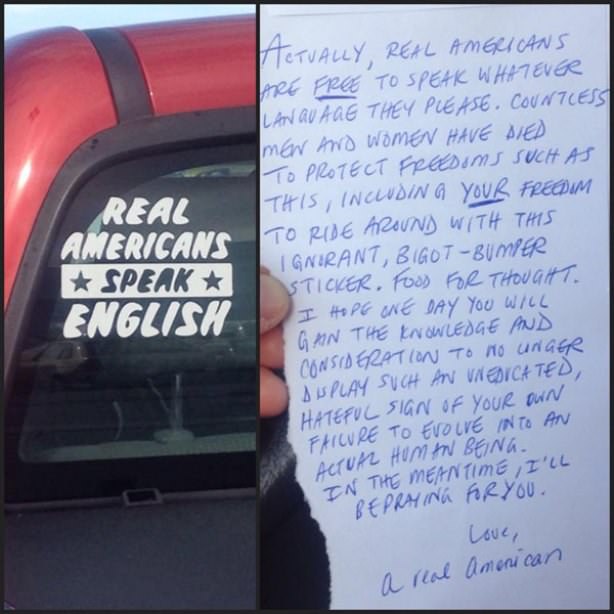 REAL
AMERICANS
★ SPEAK ★
ENGLISH
ACTUALLY, REAL AMERICANS
ARE FREE TO SPEAK WHATEVER
LANGUAGE THEY PLEASE. COUNTLESS
MEN AND WOMEN HAVE DIED
TO PROTECT FREEDOMS SUCH AS
THIS, INCLUDING YOUR FREEDOM
TO RIDE AROUND WITH THIS
IGNORANT, BIGOT-BUMPER
STICKER. FOOD FOR THOUGHT.
I HOPE ONE DAY YOU WILL
GAIN THE KNOWLEDGE AND
CONSIDERATION TO NO LINGER
DISPLAY SUCH AN UNEDUCATED,
HATEFUL SIGN OF YOUR OWN
FAILURE TO EVOLVE INTO AN
ACTUAL HUMAN BEING.
IN THE MEANTIME, I'LL
BE PRAYING FOR YOU.
Love,
a real American